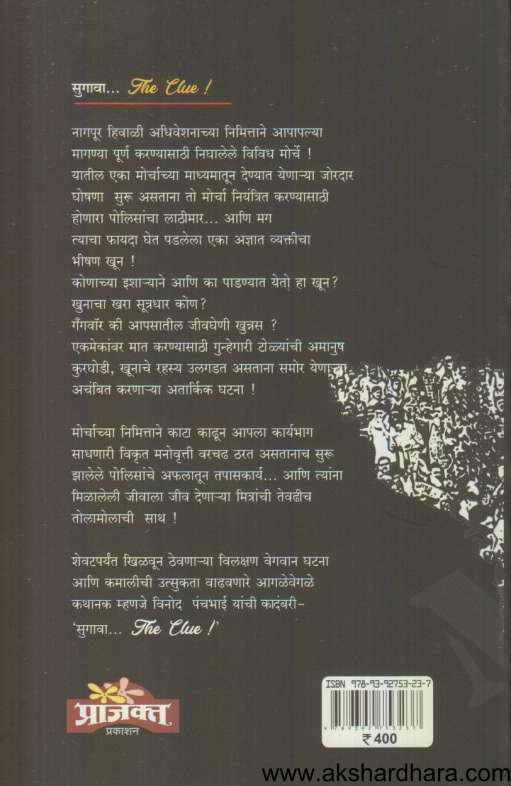 सुगावा... The Clue !
नागपूर हिवाळी अधिवेशनाच्या निमित्ताने आपापल्या
मागण्या पूर्ण करण्यासाठी निघालेले विविध मोर्चे !
यातील एका मोर्चाच्या माध्यमातून देण्यात येणाऱ्या जोरदार
घोषणा सुरू असताना तो मोर्चा नियंत्रित करण्यासाठी
होणारा पोलिसांचा लाठीमार... आणि मग
त्याचा फायदा घेत पडलेला एका अज्ञात व्यक्तीचा
भीषण खून !
कोणाच्या इशाऱ्याने आणि का पाडण्यात येतो हा खून?
खुनाचा खरा सूत्रधार कोण?
गँगवॉर की आपसातील जीवघेणी खुन्नस ?
एकमेकांवर मात करण्यासाठी गुन्हेगारी टोळ्यांची अमानुष
कुरघोडी, खुनाचे रहस्य उलगडत असताना समोर येणाऱ्या
अचंबित करणाऱ्या अतार्किक घटना !
मोर्चाच्या निमित्ताने काटा काढून आपला कार्यभाग
साधणारी विकृत मनोवृत्ती वरचढ ठरत असतानाच सुरू
झालेले पोलिसांचे अफलातून तपासकार्य... आणि त्यांना
मिळालेली जीवाला जीव देणाऱ्या मित्रांची तेवढीच
तोलामोलाची साथ !
शेवटपर्यंत खिळवून ठेवणाऱ्या विलक्षण वेगवान घटना
आणि कमालीची उत्सुकता वाढवणारे आगळेवेगळे
कथानक म्हणजे विनोद पंचभाई यांची कादंबरी-
'सुगावा... The Clue !'
ISBN 978-93-92753-23-7
प्राजक्त
प्रकाशन
₹ 400
www.akshardhara.com